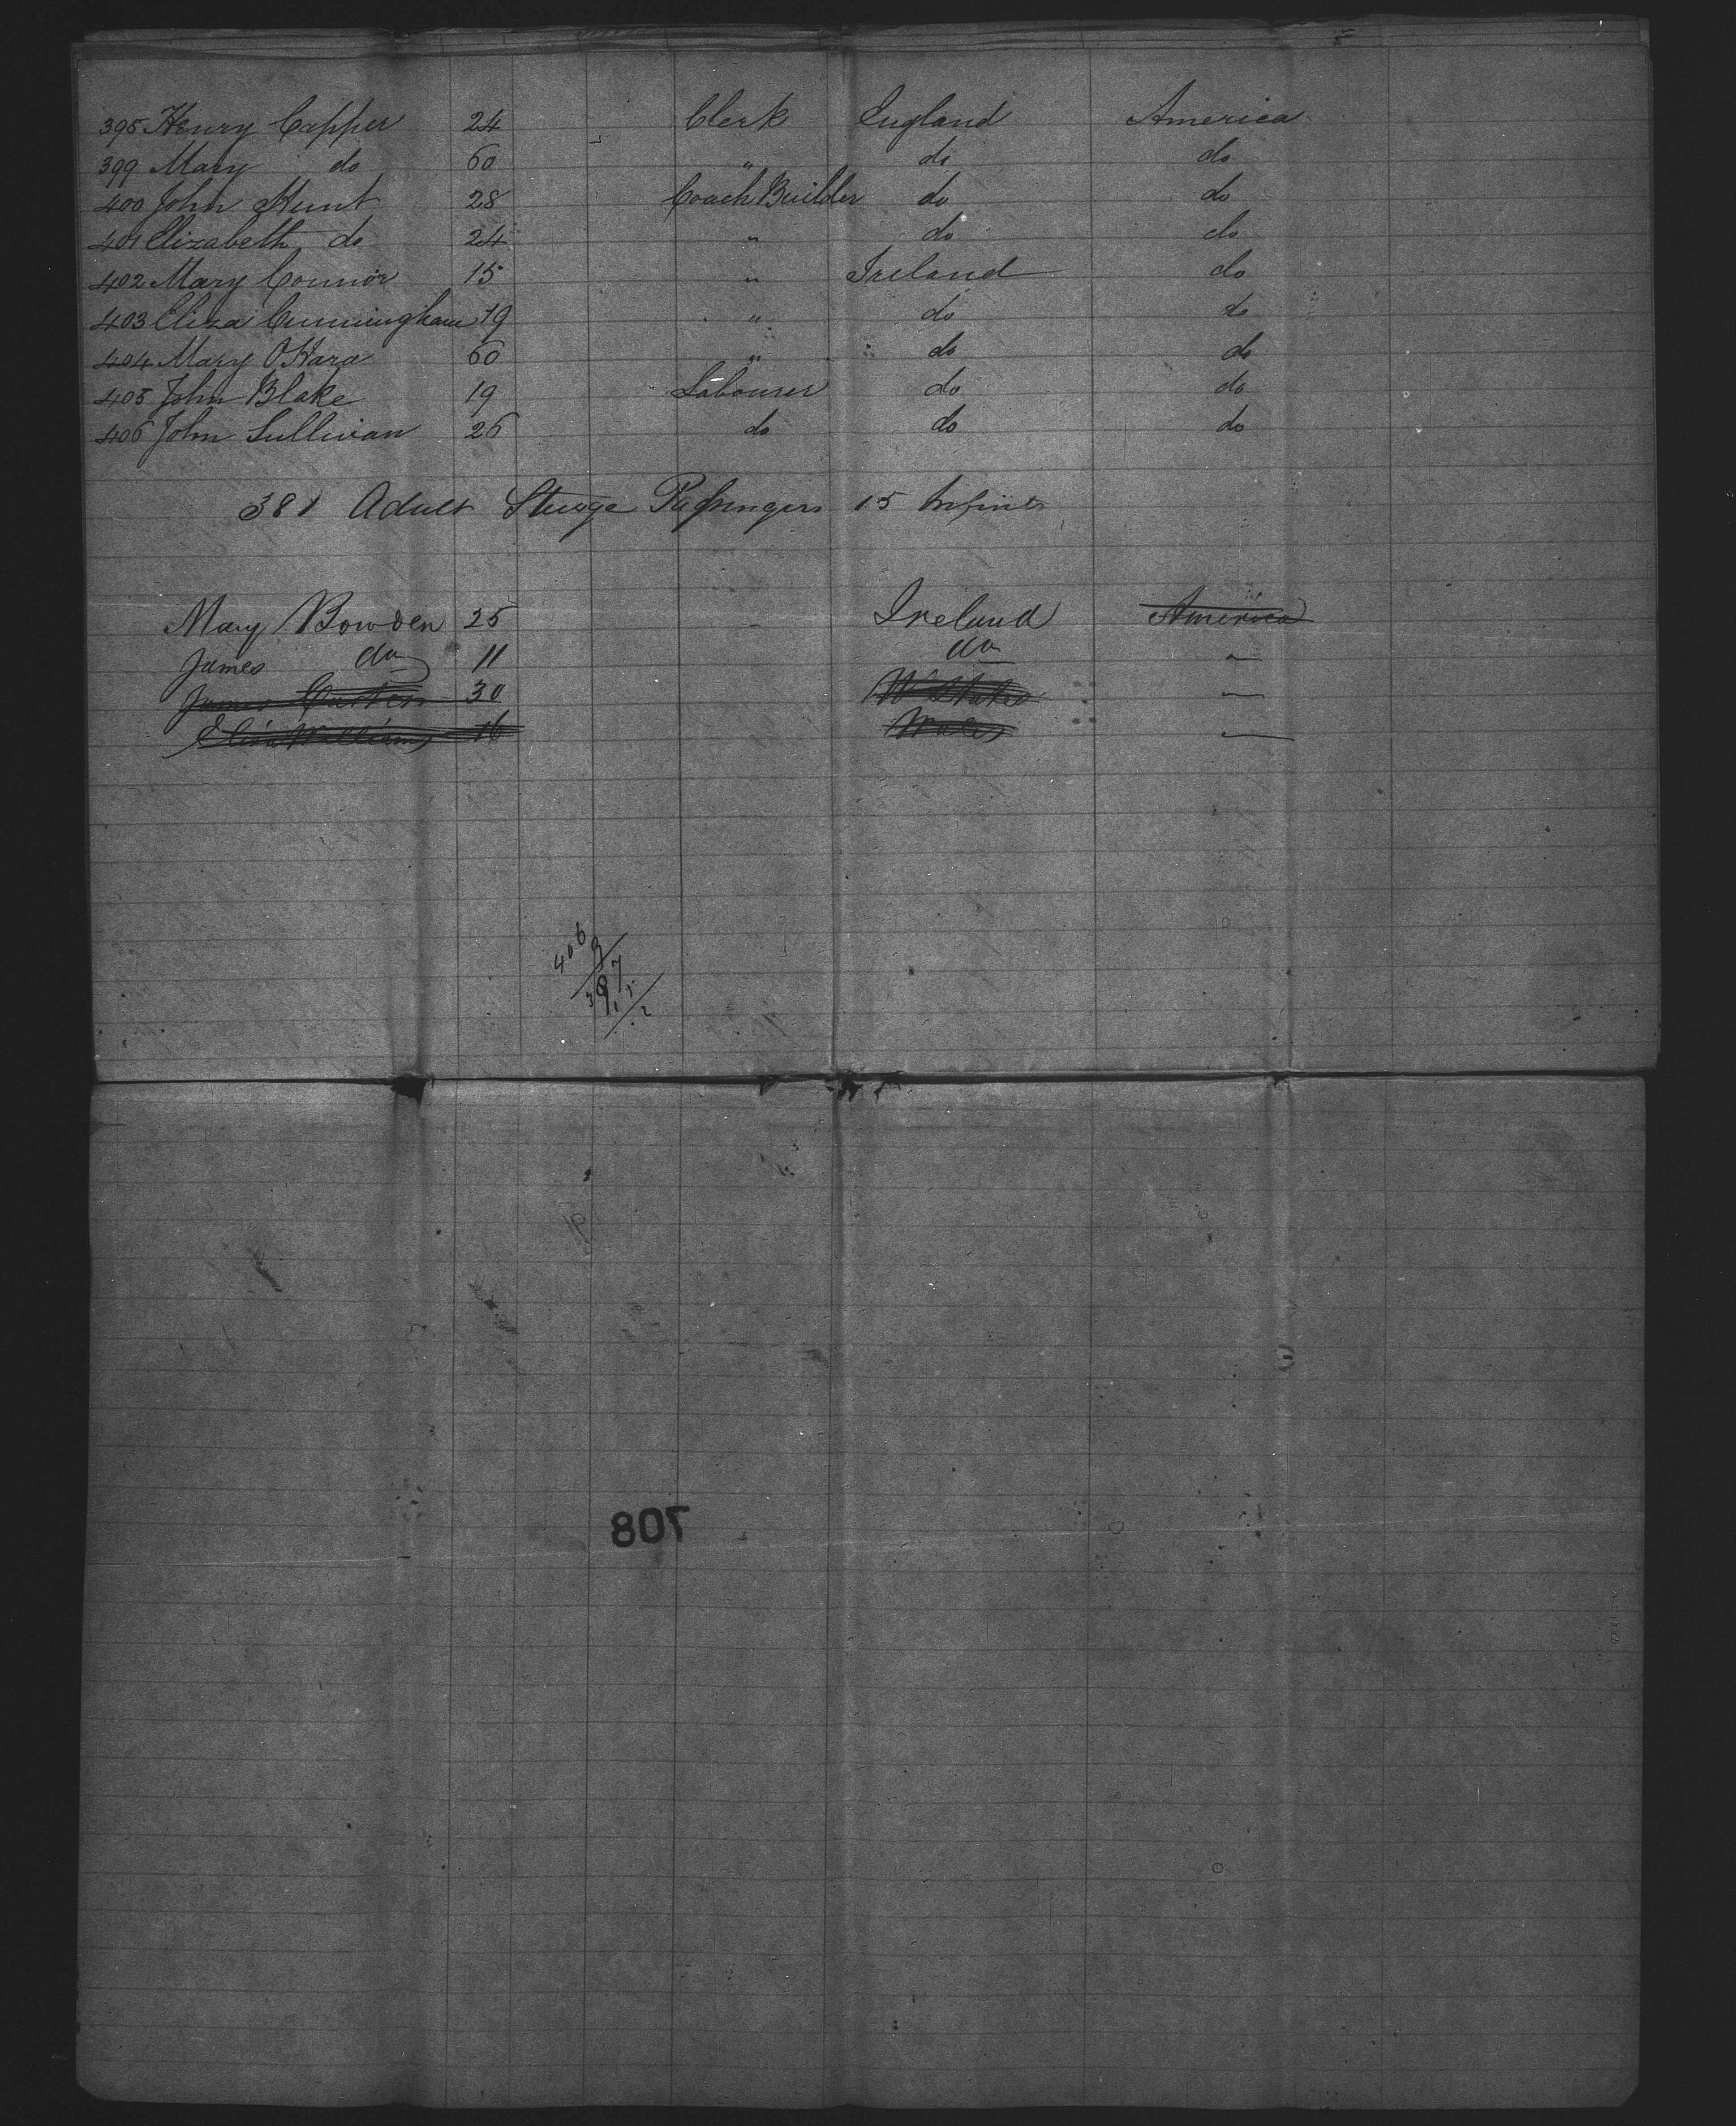 395 Henry Capper 24 Clerk England America
399 Mary do 60 " do do
400 John Hunt 28 Coach Builder do do
401 Elizabeth do 24 " do do
402 Mary Connor 15 " Ireland do
403 Eliza Cunningham 19 " do do
404 Mary O'Hara 60 " do do
405 John Blake 19 Labourer do do
406 John Sullivan 26 do do do
381 Adult Steerage Passengers 15 Infants
Mary Bowden 25 Ireland America
James do 11 do "
James 30
Eliza Williams 16 Wales
406
9
397
15
708